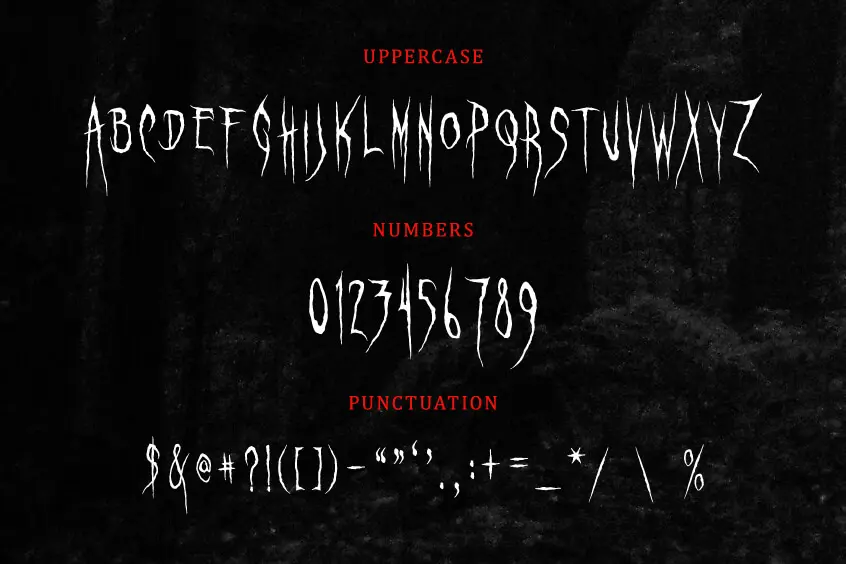 UPPERCASE
ABCDEFGHIJKLMNOPQRSTUVWXYZ
NUMBERS
0123456789
PUNCTUATION
$&@#?!([])-“”‘’.,:+=_*/\%